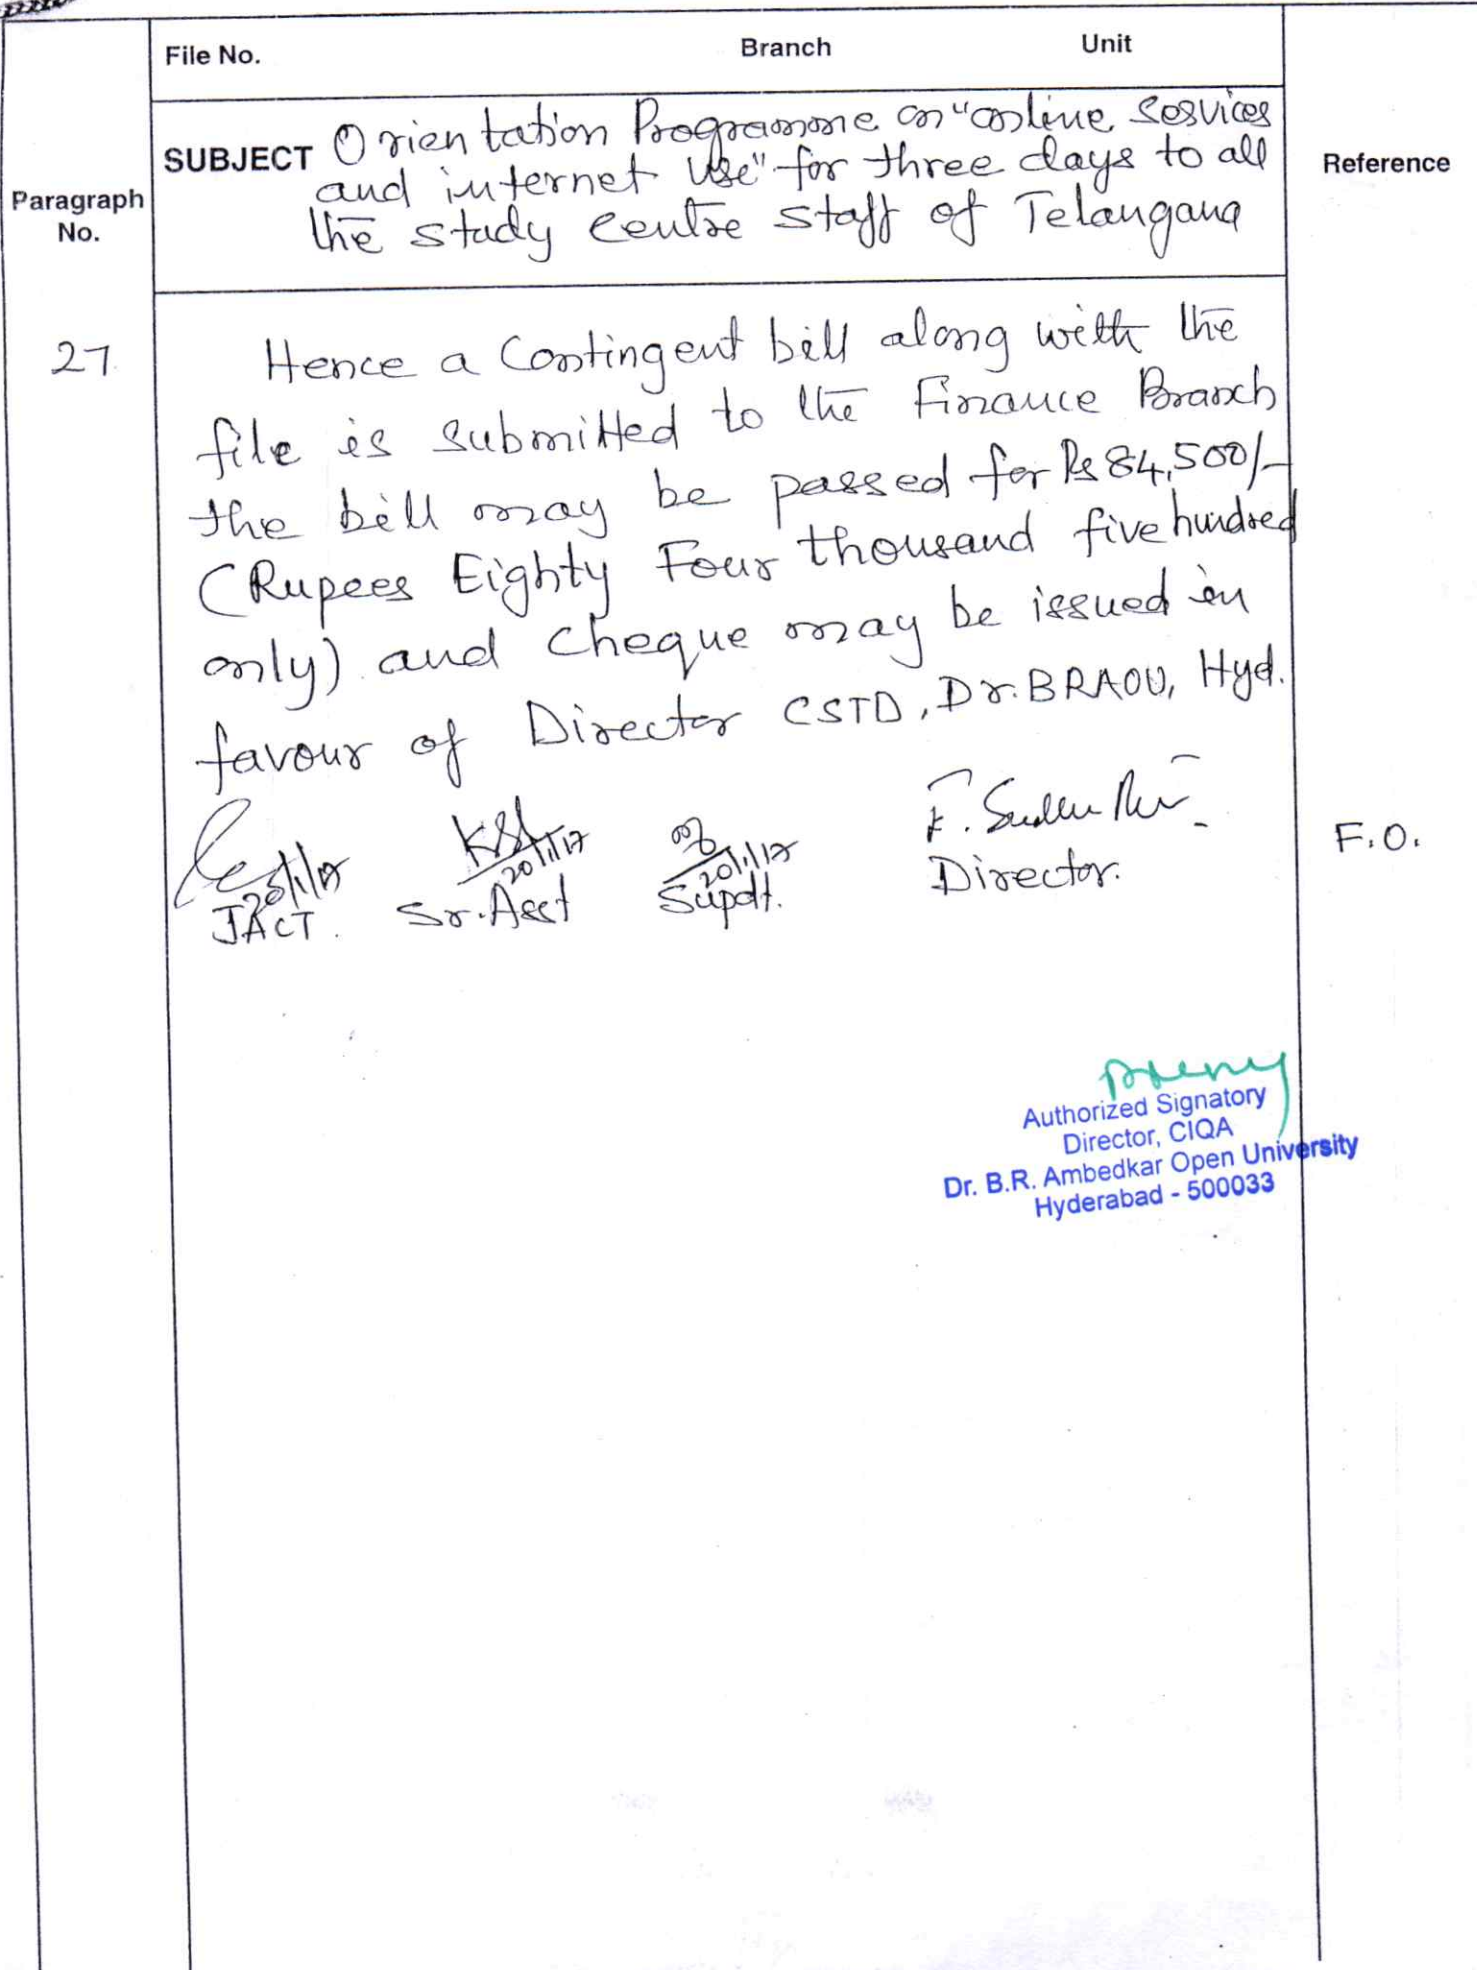 File No. Branch Unit
SUBJECT Orientation Programme on "online services
and internet use" for three days to all
the study centre staff of Telangana
Paragraph
No.
Reference
27
Hence a Contingent bill along with the
file is submitted to the Finance Branch
the bill may be passed for Rs 84,500/-
(Rupees Eighty Four thousand five hundred
only) and cheque may be issued in
favour of Director CSTD, Dr. BRAOU, Hyd.
20/1/17 20/1/17
JACT. Sr. Asst Supdt. Director.
F.O.
Authorized Signatory
Director, CIQA
Dr. B.R. Ambedkar Open University
Hyderabad - 500033